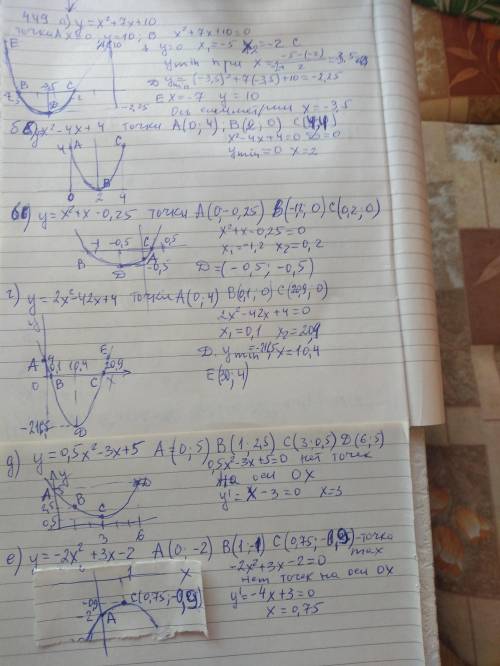 449 а) y = x²+7x+10
точка A x=0 y=10; B x²+7x+10=0
y=0 x₁=-5 x₂=-2 C
y min при x = (-5-(-2))/2 = -3,5
D y min = (-3,5)²+7(-3,5)+10 = -2,25
E x=-7 y=10
Ось симметрии x=-3,5
E 10
B -3,5 C
-7,5 -2
D -2,25
б) x²-4x+4 точки A(0;4), B(2;0) C(4;4)
x²-4x+4=0 D=0
y min=0 x=2
4 A C
B
0 2 4
в) y=x²+x-0,25 точки A(0;-0,25) B(-1,2;0) C(0,2;0)
x²+x-0,25=0
x₁=-1,2 x₂=0,2
D=(-0,5; -0,5)
-1 -0,5 C 0,5
B D A -0,5
г) y=2x²-42x+4 точки A(0;4) B(0,1;0) C(20,9;0)
2x²-42x+4=0
x₁=0,1 x₂=20,9
D. y min=-216,5, x=10,4
E(20;4)
y
A 4 0,1 10,4 E 20,9
0 B C x
-216,5 D
д) y=0,5x²-3x+5 A(0;5) B(1;2,5) C(3;0,5) D(6;5)
0,5x²-3x+5=0 нет точек
на оси OX
y'=x-3=0 x=3
A 5 y D
2,5 B
0,5 C
3 6
е) y=-2x²+3x-2 A(0;-2) B(1;-1) C(0,75;-0,9)-точка
max
-2x²+3x-2=0
нет точек на оси OX
y'=-4x+3=0
x=0,75
1 x
-0,9 C(0,75;-0,9)
-2 A